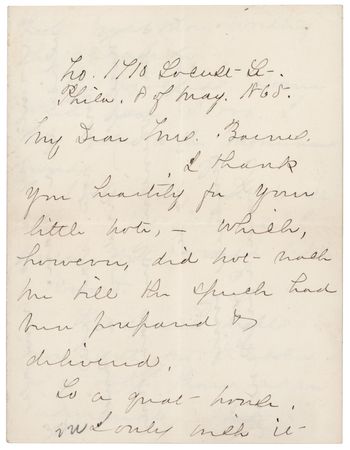 No. 1710 Locust St.
Phila. 8 of May. 1865.
My Dear Mrs. Barnes.
I thank
you heartily for your
little note, - which,
however, did not reach
me till the speech had
been prepared &
delivered.
To a great house.
I only wish it